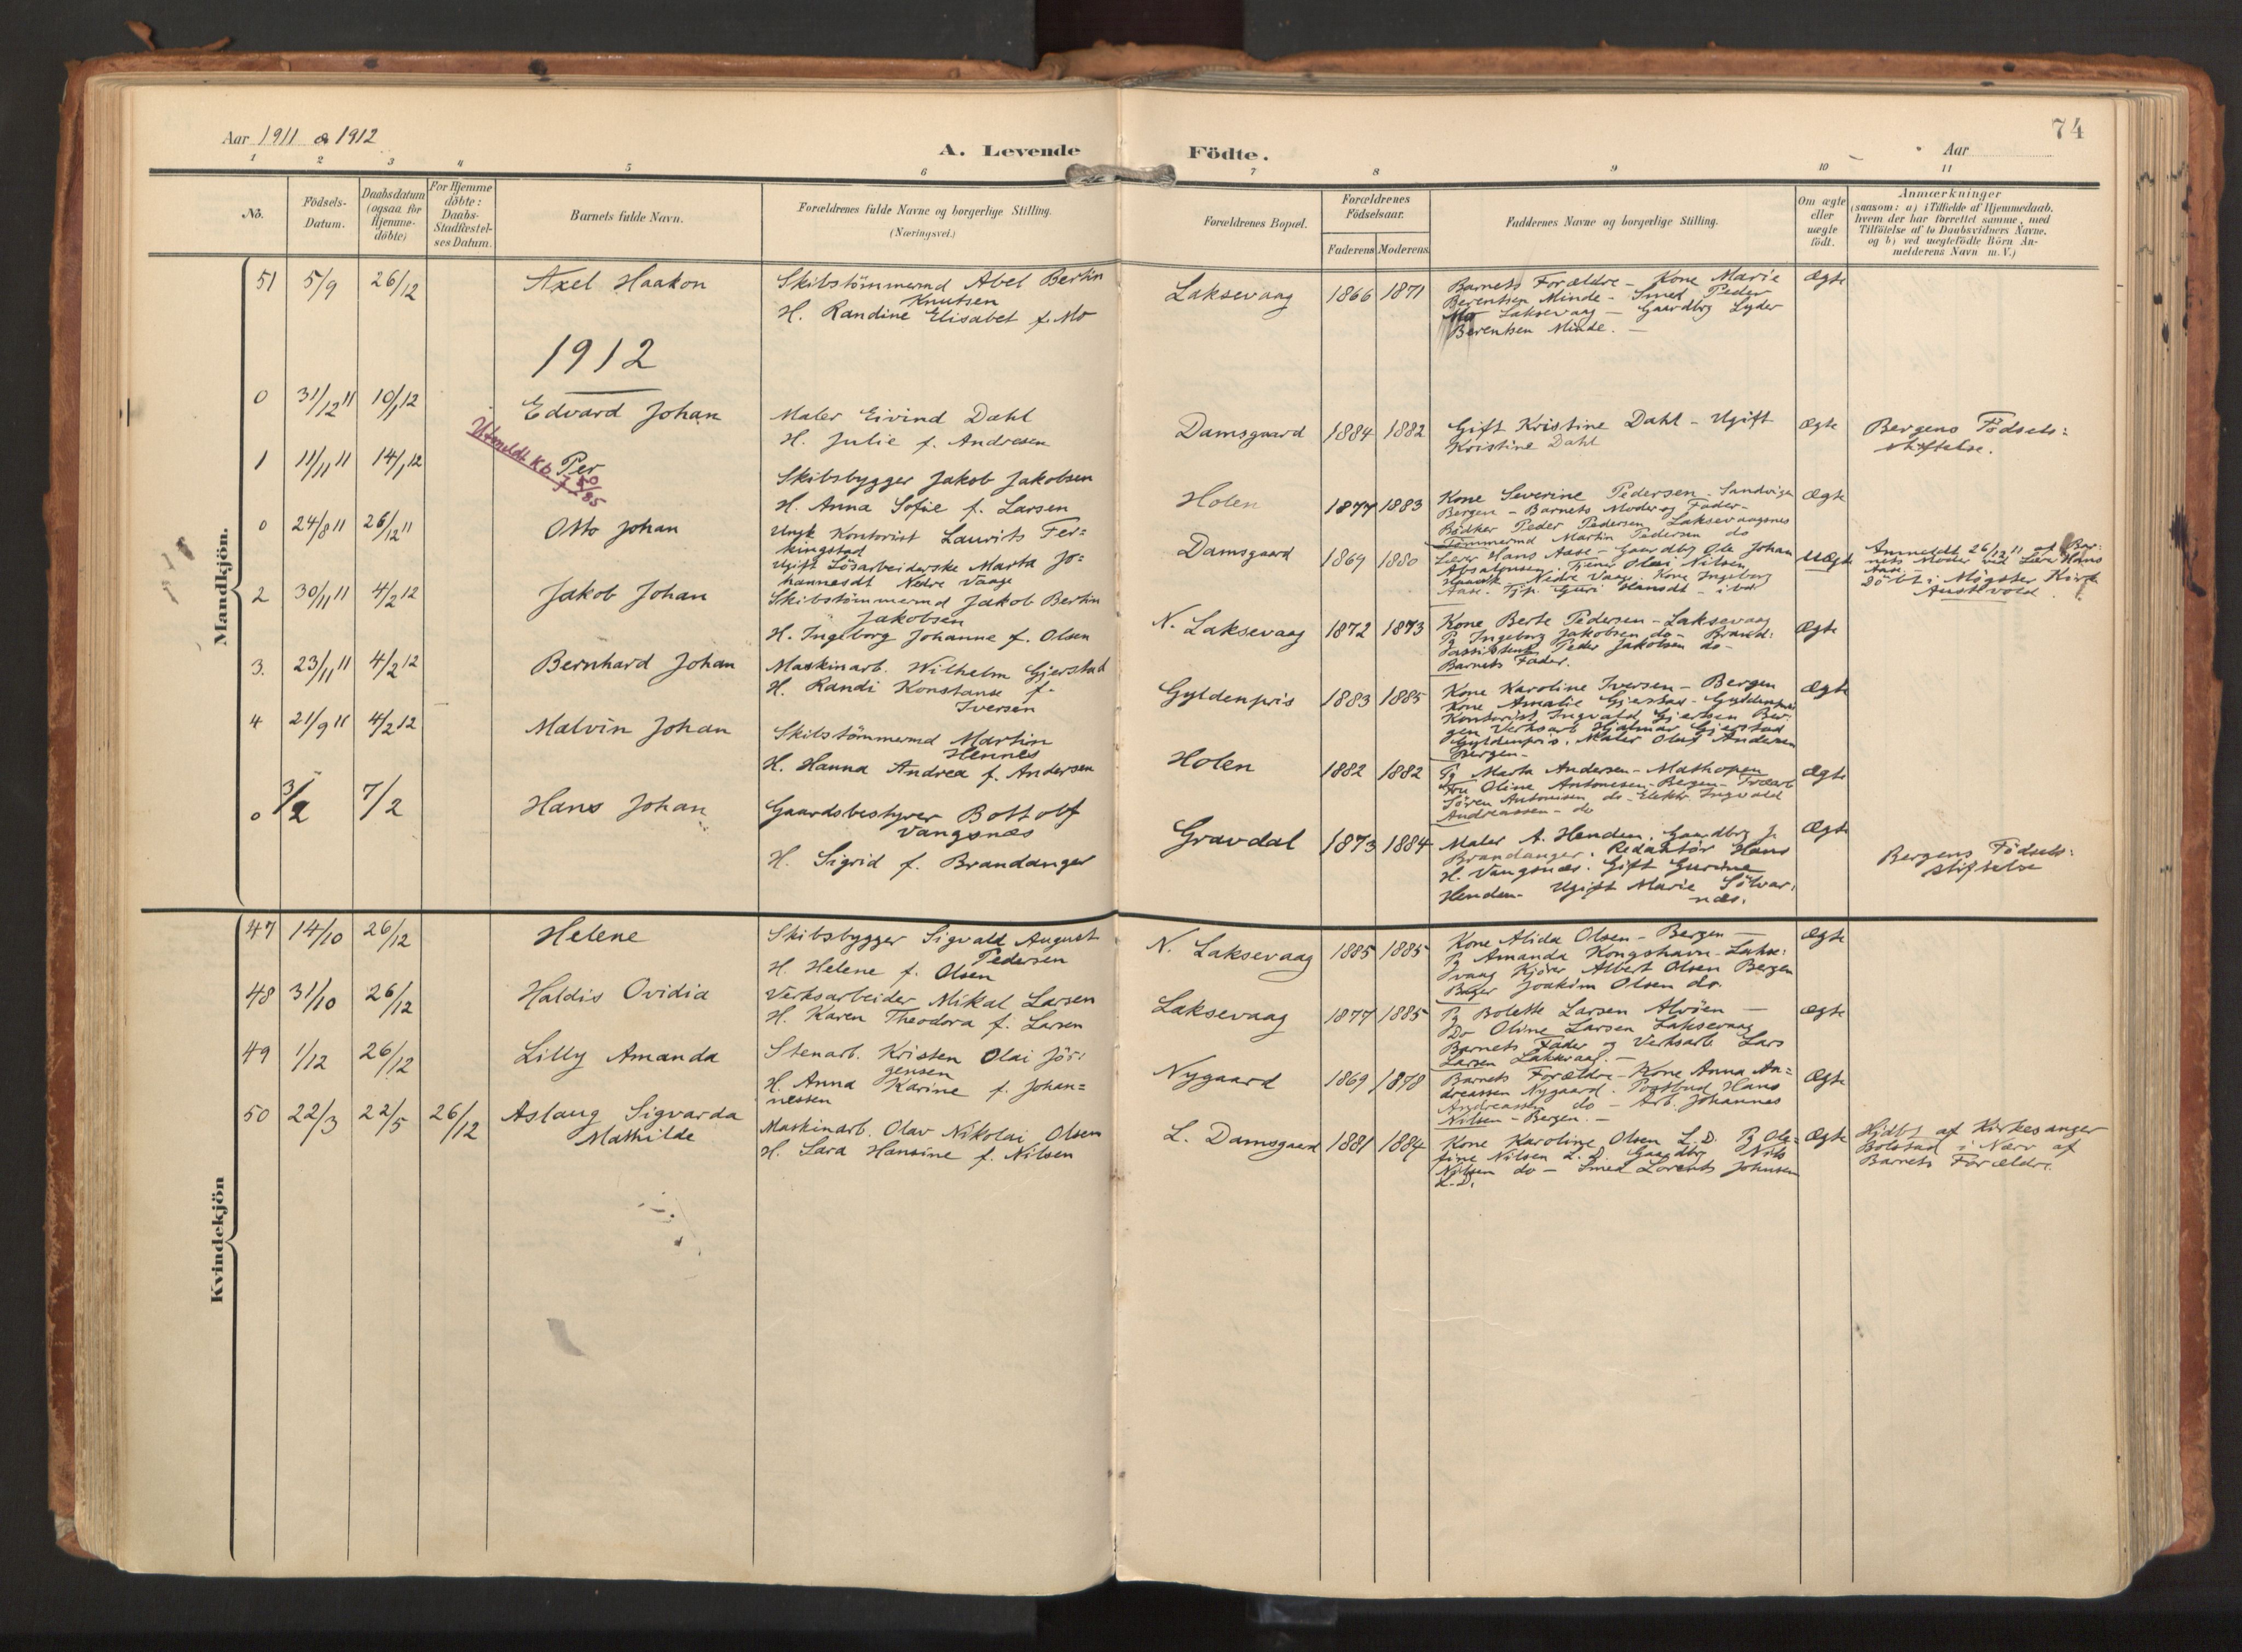 74
Aar 1911 & 1912
A. Levende Födte.
Aar
1 2 3 4 5 6 7 8 9 10 11
No.
Födsels-
Datum.
Daabsdatum
(ogsaa for
Hjemme-
döbte)
For Hjemme
döbte:
Daabs-
Stadfestel-
ses Datum.
Barnets fulde Navn.
Forældrenes fulde Navne og borgerlige Stilling.
(Næringsvei.)
Forældrenes Bopæl.
Forældrenes
Födselsaar.
Faderens Moderens
Faddernes Navne og borgerlige Stilling.
Om ægte
eller
uægte
födt.
Anmærkninger
(saasom: a) i Tilfælde af Hjemmedaab,
hvem der har forrettet samme, med
Tilföielse af to Daabsvidners Navne,
og b) ved uegtefödte Börn An-
melderens Navn m.V.)
Mandkjön.
51 5/9 26/12 Axel Haakon
Skibstömmermd Abel Bertin
Knutsen
H. Randine Elisabet f. Mo
Laksevaag 1866 1871
Barnets Forældre - Kone Marie
Berentsen Minde - Smed Peder
Mo Laksevaag - Gaardbrg Lyder
Berentsen Minde. -
Ægte
1912
0 31/12 11 10/1 12 Edvard Johan
Maler Eivind Dahl
H. Julie f. Andresen
Damsgaard 1884 1882
Gift Kristine Dahl - Ugift
Kristine Dahl
Ægte
Bergens Födsels:
stiftelse.
1 11/11 11 14/1 12 Per
Utmeldt
Skibsbygger Jakob Jakobsen
H. Anna Sofie f. Larsen
Holen 1877 1883
Kone Severine Pedersen. Sandvigen
Bergen - Barnets Moder og Fader -
Bödker Peder Pedersen Laksevaagsnes
Tömmermd Martin Pedersen do
Ægte
0 24/8 11 26/12 11 Otto Johan
Ungk Kontorist Laurits Fer=
kingstad
Ugift Lösarbeiderske Marta Jo=
hannesdt Nedre Vaage
Damsgaard 1869 1880
Lærer Hans Aase - Gaardbrg Ole Johan
Absalonsen. Tjener Olai Nilsen
Nedre Vaage. Kone Ingeborg
Aase. Guri Hansdt - ibd
Uægte
Anmeldt 26/12 11 af Bar:
nets Moder ved Lærer Hans
Aase -
Döbt i Mögster Kirke
Austevold
2 30/11 11 4/2 12 Jakob Johan
Skibstömmermd Jakob Bertin
Jakobsen
H. Ingeborg Johanne f. Olsen
N. Laksevaag 1872 1873
Kone Berte Pedersen - Laksevaag
Pg Ingeborg Jakobsen do -
Peder Jakobsen do -
Barnets Fader.
Ægte
3. 23/11 11 4/2 12 Bernhard Johan
Maskinarb. Wilhelm Gjerstad
H. Randi Konstanse f.
Iversen
Gyldenpris 1883 1885
Kone Karoline Iversen - Bergen
Kone Amalie Gjerstad - Gyldenpris
Kontorist Ingvald Gjertsen Ber:
gen Verksarb Hjalmar Gjerstad
Gyldenpris. Maler Oluf Andersen
Bergen -
Ægte
4 21/9 11 4/2 12 Malvin Johan
Skibstömmermd Martin
Hennes
H. Hanna Andrea f. Andersen
Holen 1882 1882
Pg Marta Andersen - Mathopen
Fru Oline Antonisen - Bergen -
Sören Antonisen do - Elektr. Ingvald
Andreassen - do
Ægte
0 3/2 7/2 Hans Johan
Gaardsbestyrer Bottolf
Vangsnæs
H. Sigrid f. Brandanger
Gravdal 1873 1884
Maler A. Henden. Gaardbrg J.
Brandanger. Redaktör Hans
H. Vangsnæs. Gift Gurine
Henden - Ugift Marie Sölvar:
næs.
Ægte
Bergens Födsels:
stiftelse
Kvindekjön
47 14/10 26/12 Helene
Skibsbygger Sigvald August
Pedersen
H. Helene f. Olsen
N. Laksevaag 1885 1885
Kone Alida Olsen - Bergen -
Pg Amanda Kongshavn - Lakse:
vaag Kjörer Albert Olsen Bergen
Joakim Olsen do
Ægte
48 31/10 26/12 Haldis Ovidia
Verksarbeider Mikal Larsen
H. Karen Theodora f. Larsen
Laksevaag 1877 1885
Pg Bolette Larsen Alvöen -
Do Oline Larsen Laksevaag
Barnets Fader og Verksarb Lars
Larsen Laksevaag. -
Ægte
49 1/12 26/12 Lilly Amanda
Stenarb. Kristen Olai Jör:
gensen
H. Anna Karine f. Johan=
nessen
Nygaard 1869 1878
Barnets Forældre - Kone Anna An=
dreassen Nygaard. Postbud Hans
Andreassen do - Arb. Johannes
Nilsen - Bergen. -
Ægte
50 22/3 22/5 26/12 Aslaug Sigvarda
Mathilde
Maskinarb. Olav Nikolai Olsen
H. Lara Hansine f. Nilsen
L. Damsgaard 1881 1884
Kone Karoline Olsen L.D. Pg Ole=
fine Nilsen L.D. Gaardbrg Nils
Nilsen do - Smed Lorents Johnsen
L.D.
Ægte
Hjdbt af Kirkesanger
Bolstad i Nærv af
Barnets Forældre.